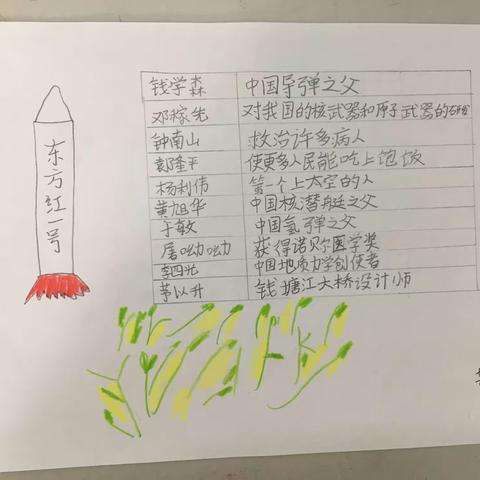 东方红一号
钱学森 中国导弹之父
邓稼先 对我国的核武器和原子武器的研发
钟南山 救治许多病人
袁隆平 使更多人民能吃上饱饭
杨利伟 第一个上太空的人
黄旭华 中国核潜艇之父
于敏 中国氢弹之父
屠呦呦 获得诺贝尔医学奖
李四光 中国地质力学创使者
茅以升 钱塘江大桥设计师